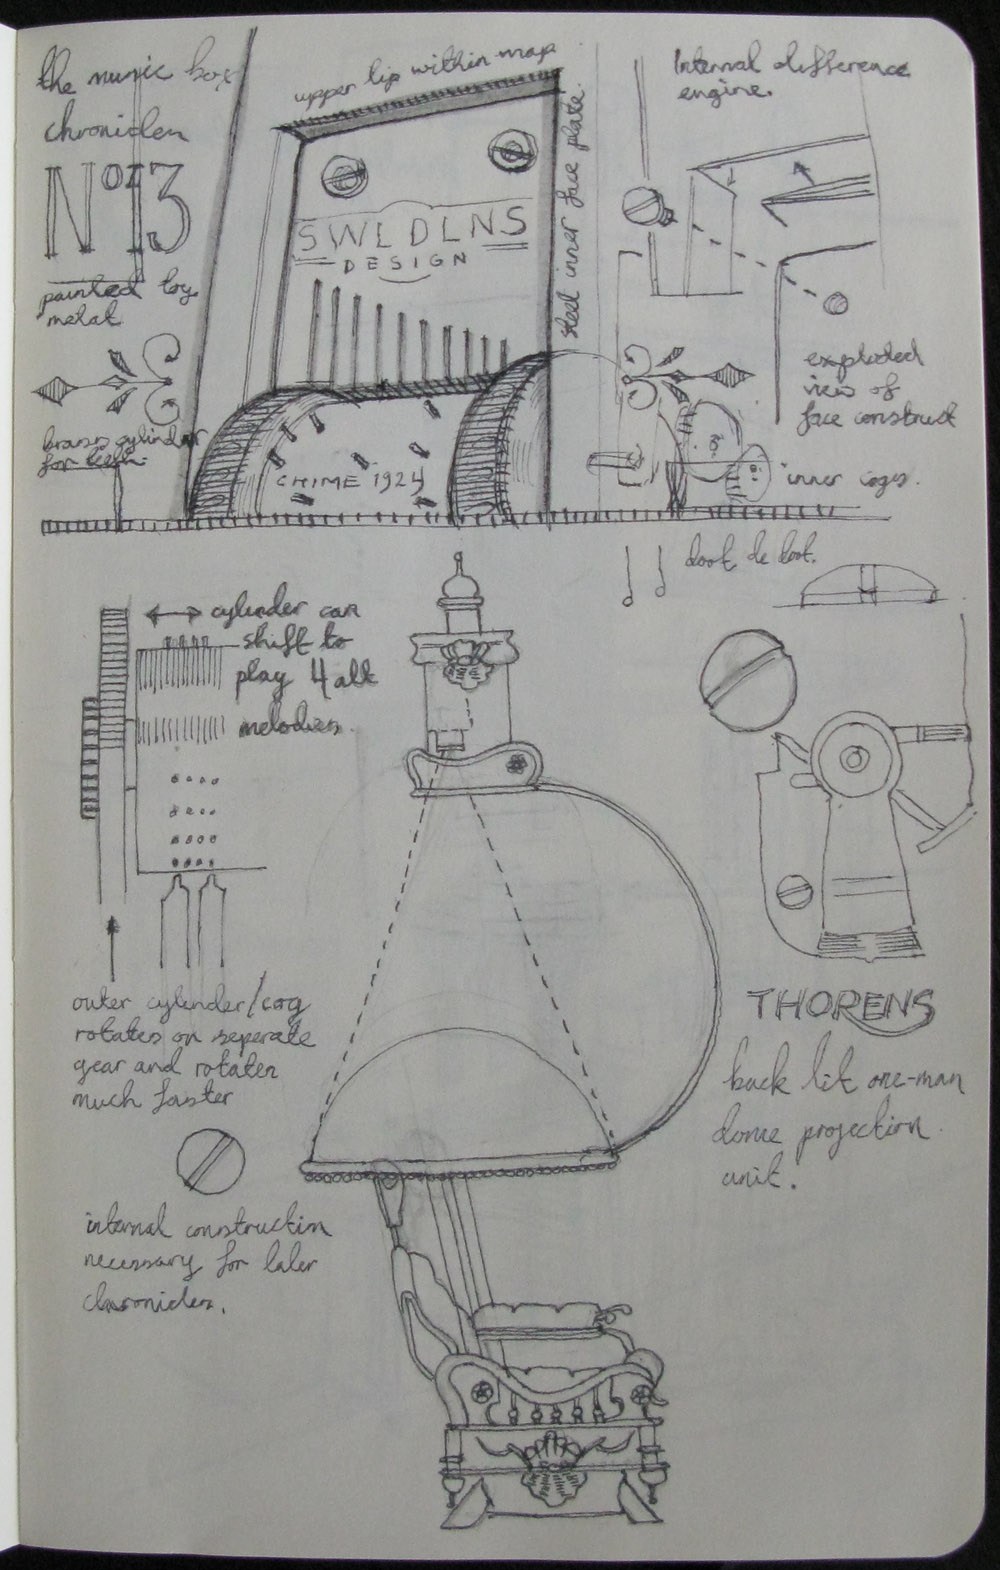 the music box
chronicles
Nº13
painted toy
metal
upper lip within map
steel inner face plate.
Internal difference
engine.
SWEDENS
DESIGN
exploded
view of
face construct
brass cylinder
for teeth.
CHIME 1924
inner cogs.
doot de doot.
cylinder can
shift to
play 4 alt
melodies.
outer cylinder/cog
rotates on seperate
gear and rotates
much faster
THORENS
back lit one-man
dome projection
unit.
internal construction
necessary for later
chronicles.